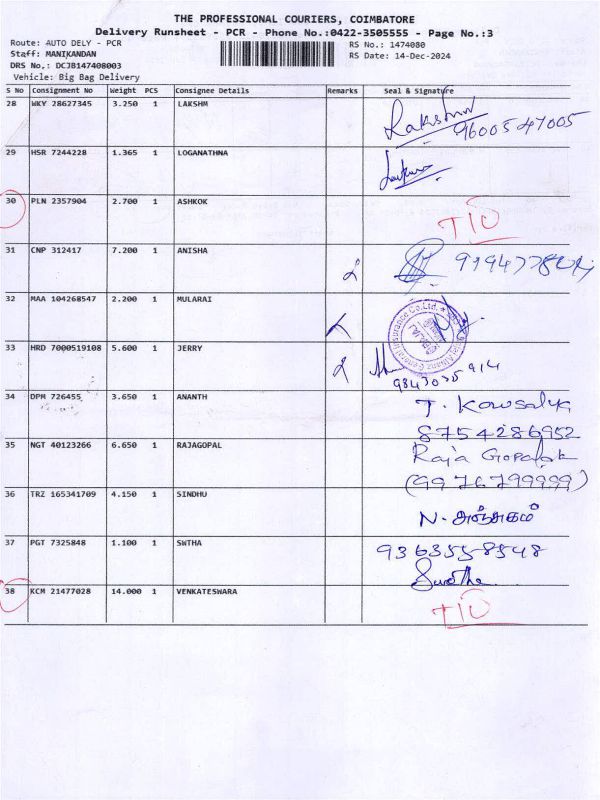 THE PROFESSIONAL COURIERS, COIMBATORE
Delivery Runsheet - PCR - Phone No.:0422-3505555 - Page No.:3
Route: AUTO DELY - PCR RS No.: 1474080
Staff: MANIKANDAN RS Date: 14-Dec-2024
DRS No.: DCJB147408003
Vehicle: Big Bag Delivery
S No Consignment No Weight PCS Consignee Details Remarks Seal & Signature
28 WKY 28627345 3.250 1 LAKSHM Lakshmi 9600547005
29 HSR 7244228 1.365 1 LOGANATHNA
30 PLN 2357904 2.700 1 ASHKOK T/O
31 CNP 312417 7.200 1 ANISHA
32 MAA 104268547 2.200 1 MULARAI
33 HRD 7000519108 5.600 1 JERRY
34 DPM 726455 3.650 1 ANANTH T. Kowsalya
8754286952
35 NGT 40123266 6.650 1 RAJAGOPAL Raja Gopal
(9976799999)
36 TRZ 165341709 4.150 1 SINDHU
37 PGT 7325848 1.100 1 SWTHA 9363558548
Swetha
38 KCM 21477028 14.000 1 VENKATESWARA T/O